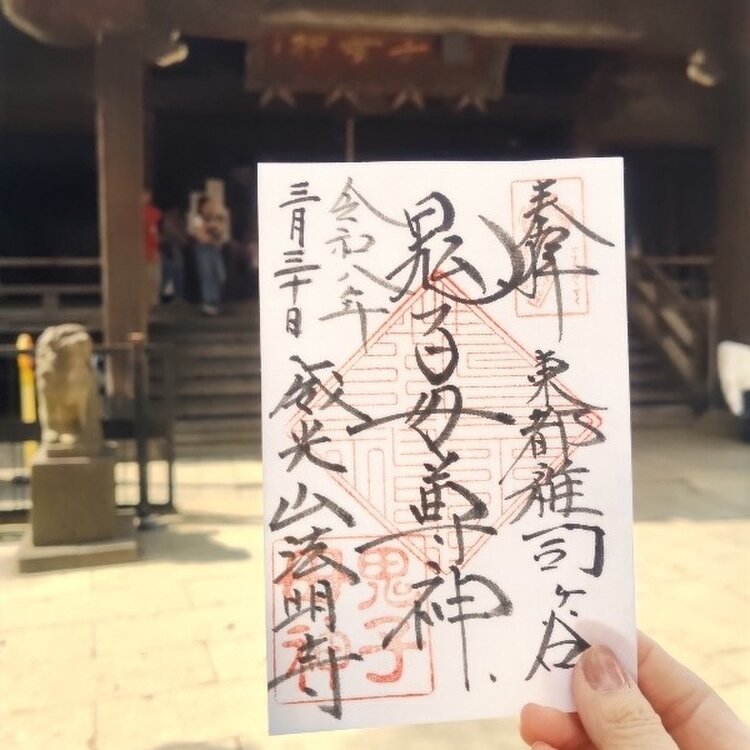 奉拝
東都雑司ヶ谷
鬼子母尊神
令和八年
三月三十日
威光山法明寺
鬼子
母神